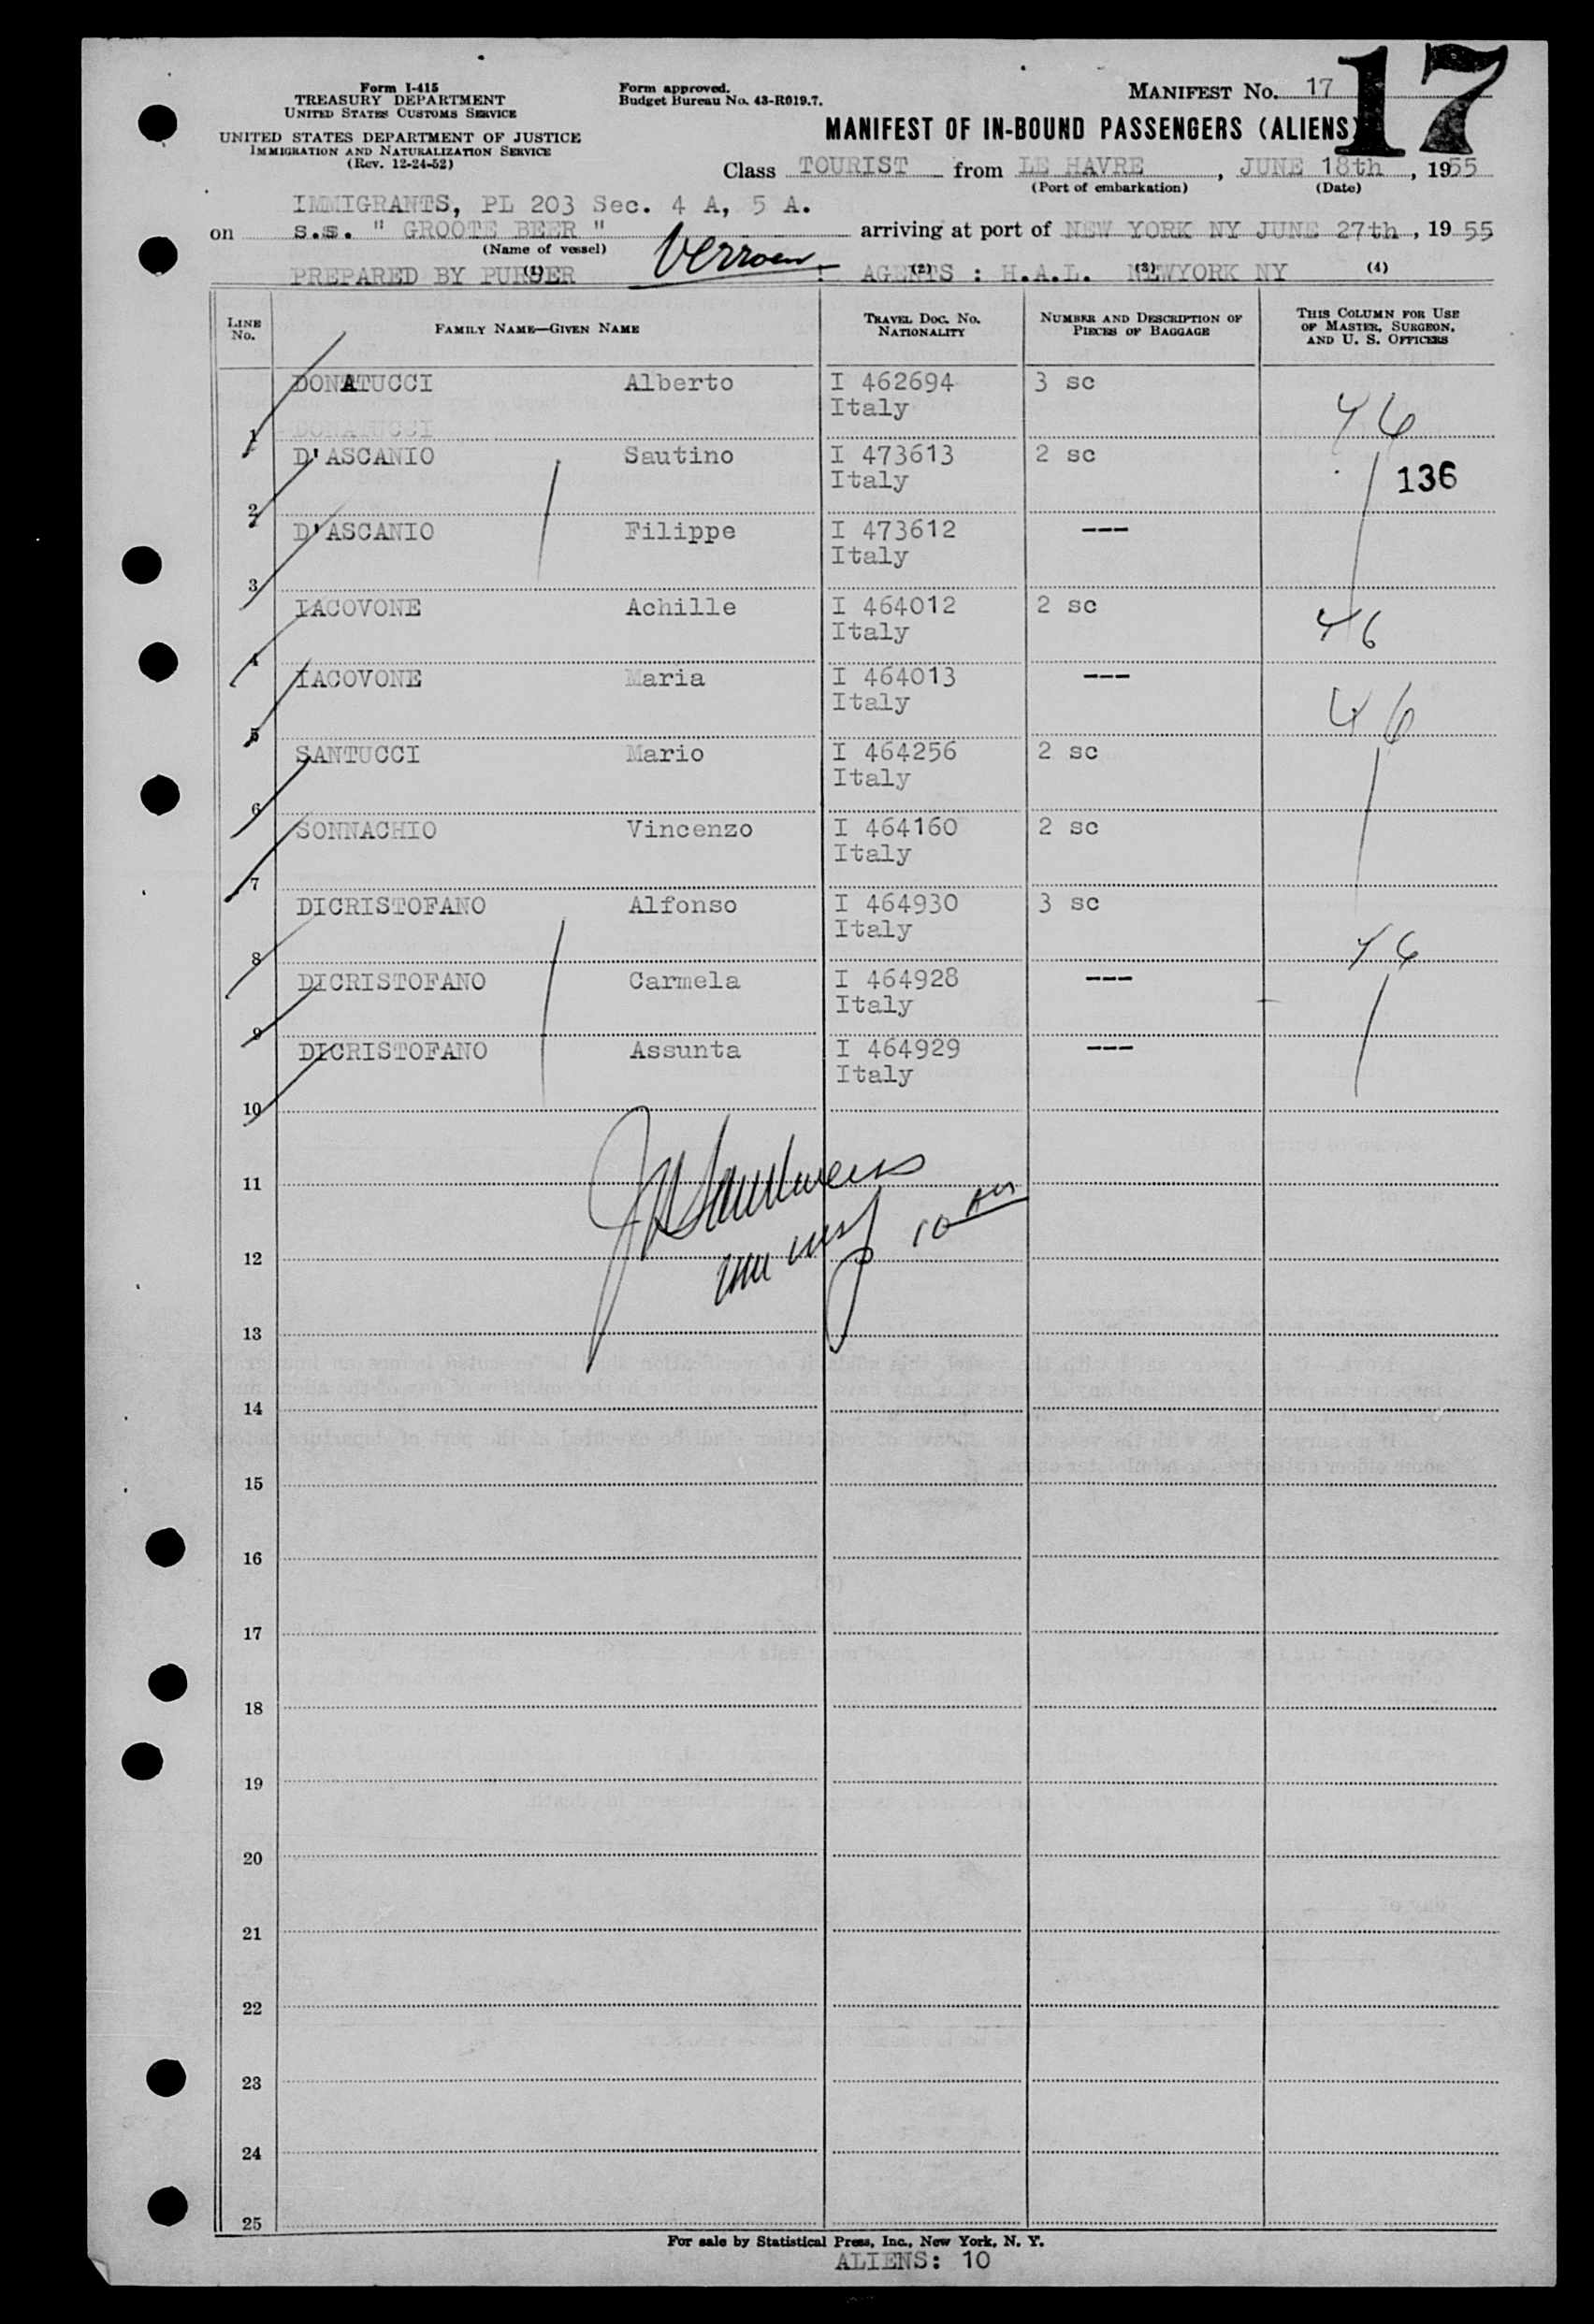 17
Form I-415
TREASURY DEPARTMENT
UNITED STATES CUSTOMS SERVICE
UNITED STATES DEPARTMENT OF JUSTICE
IMMIGRATION AND NATURALIZATION SERVICE
(Rev. 12-24-52)
Form approved.
Budget Bureau No. 43-R019.7.
MANIFEST NO. 17
MANIFEST OF IN-BOUND PASSENGERS (ALIENS)
Class TOURIST from LE HAVRE, JUNE 18th, 1955
(Port of embarkation) (Date)
IMMIGRANTS, PL 203 Sec. 4 A, 5 A.
on s.s. " GROOTE BEER " arriving at port of NEW YORK NY JUNE 27th, 1955
(Name of vessel)
PREPARED BY PURSER Verroen. AGENTS : H.A.L. NEWYORK NY
(1) (2) (3) (4)
LINE NO. FAMILY NAME—GIVEN NAME TRAVEL DOC. NO. NATIONALITY NUMBER AND DESCRIPTION OF PIECES OF BAGGAGE THIS COLUMN FOR USE OF MASTER, SURGEON, AND U. S. OFFICERS
DONATUCCI Alberto I 462694 3 sc
Italy
1 DONATUCCI 46
D'ASCANIO Sautino I 473613 2 sc
Italy 136
2
D'ASCANIO Filippe I 473612 ---
Italy
3
IACOVONE Achille I 464012 2 sc
Italy 46
4
IACOVONE Maria I 464013 ---
Italy 46
5
SANTUCCI Mario I 464256 2 sc
Italy
6
SONNACHIO Vincenzo I 464160 2 sc
Italy
7
DICRISTOFANO Alfonso I 464930 3 sc
Italy
8 46
DICRISTOFANO Carmela I 464928 ---
Italy
9
DICRISTOFANO Assunta I 464929 ---
Italy
10
11
10 AM
12
13
14
15
16
17
18
19
20
21
22
23
24
25
For sale by Statistical Press, Inc., New York, N. Y.
ALIENS: 10